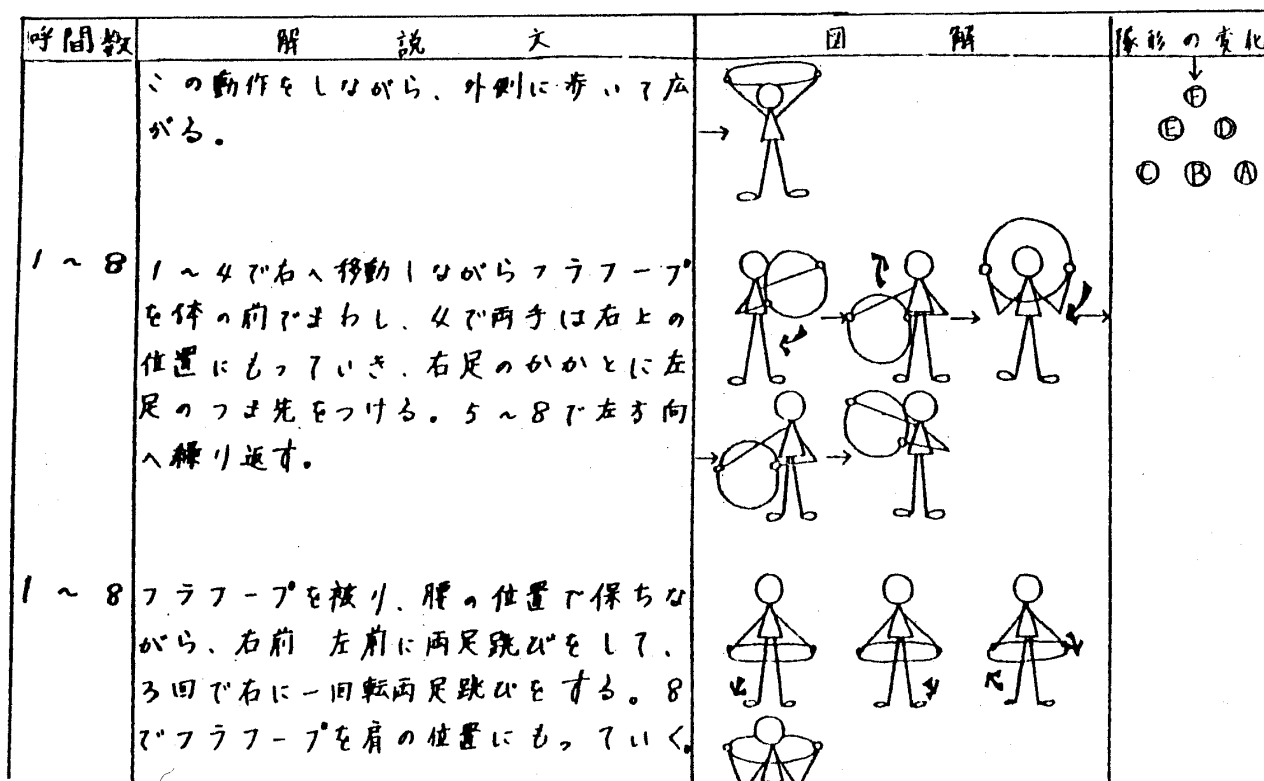 呼間数 解説文 図解 隊形の変化
この動作をしながら、外側に歩いて広
がる。
F
E D
C B A
1～8
1～4で右へ移動しながらフラフープ
を体の前でまわし、4で両手は右上の
位置にもっていき、右足のかかとに左
足のつま先をつける。5～8で左方向
へ繰り返す。
1～8
フラフープを被り、腰の位置で保ちな
がら、右前 左前に両足跳びをして、
3回で右に一回転両足跳びをする。8
でフラフープを肩の位置にもっていく。